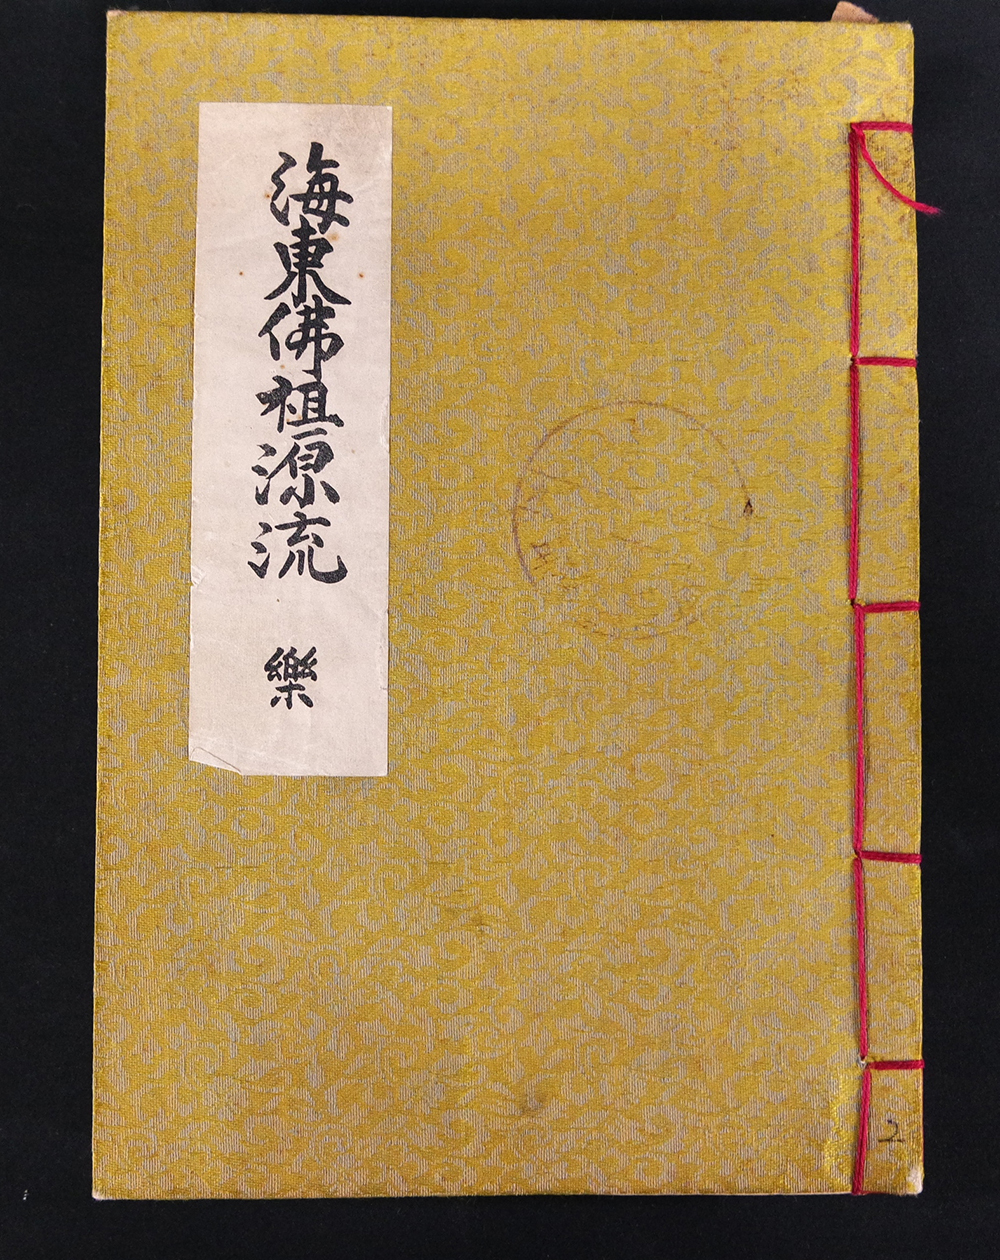 海東佛祖源流 樂
2